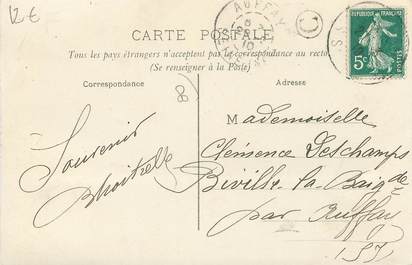 12 €
AUFFAY
C
CARTE POSTALE
Tous les pays étrangers n'acceptent pas la correspondance au recto
(Se renseigner à la Poste)
RÉPUBLIQUE FRANÇAISE
5c
POSTES
Correspondance
Adresse
Souvenir
Mademoiselle
Clémence Deschamps
Biville-la-Baignde
par Auffay